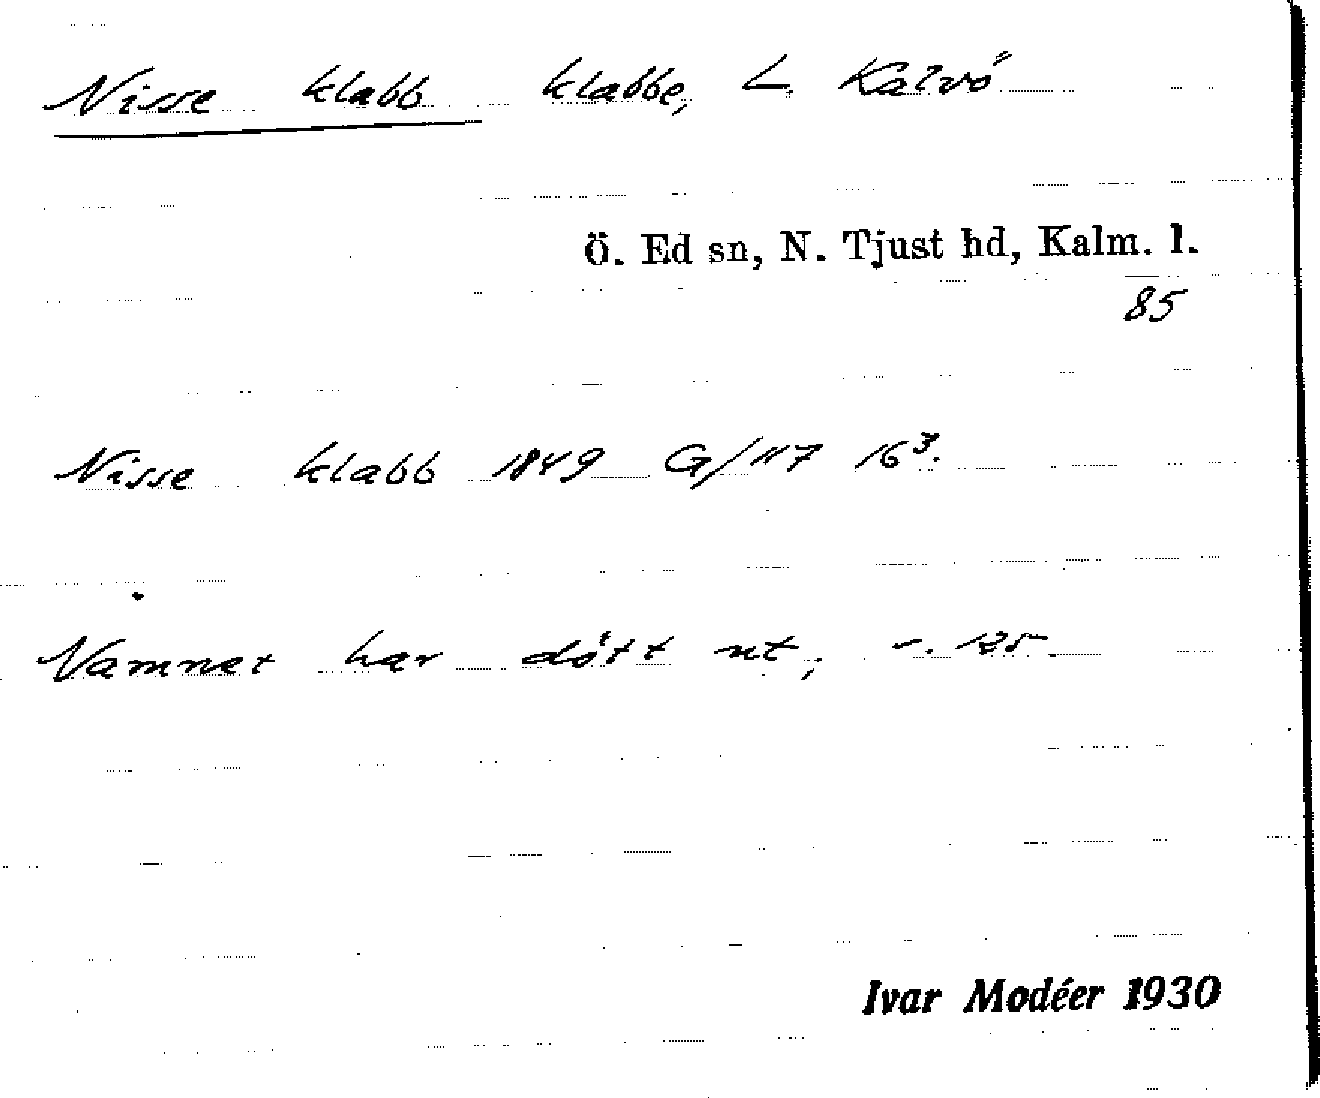 Nisse klabb klabbe, L. Kalvö
Ö. Ed sn, N. Tjust hd, Kalm. l.
85
Nisse klabb 1849 G/117 16³.
Namnet har dött ut, s. 125.
Ivar Modéer 1930